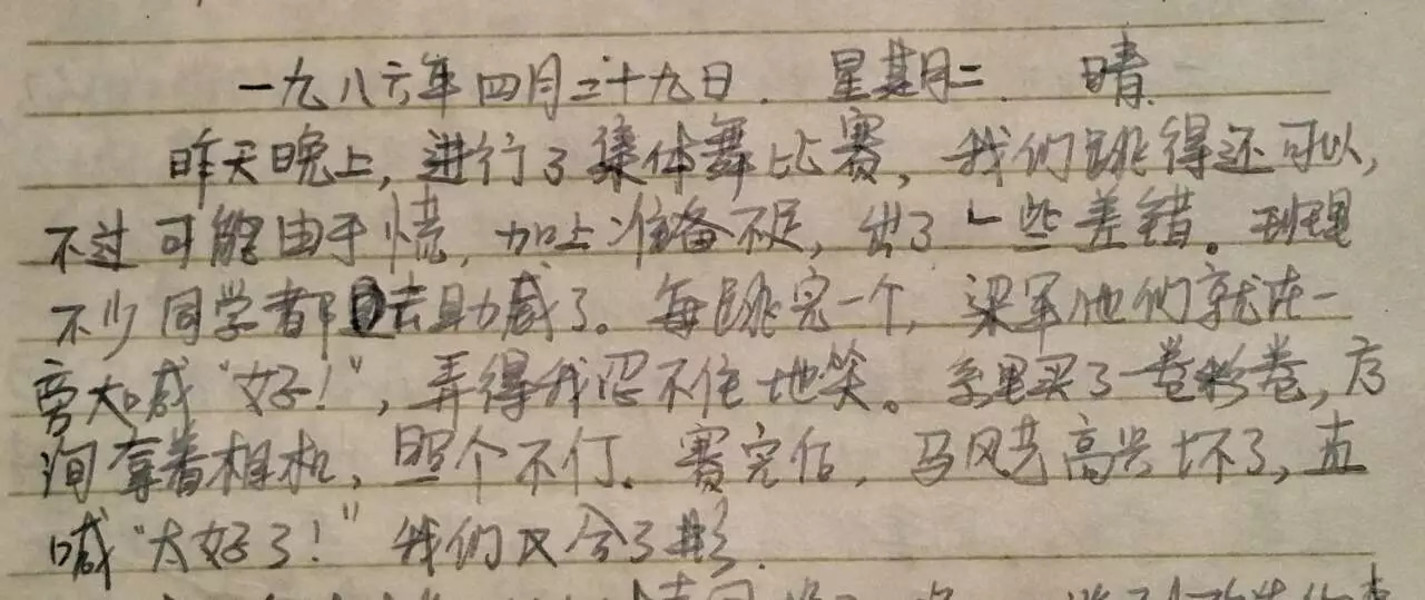 一九八六年四月二十九日. 星期二. 晴.
昨天晚上, 进行了集体舞比赛, 我们跳得还可以,
不过可能由于慌, 加上准备不足, 出了一些差错。班里
不少同学都去助威了。每跳完一个, 梁军他们就在一
旁大喊“好!”, 弄得我忍不住地笑。系里买了一卷彩卷, 方
询拿着相机, 照个不停. 赛完后, 马风芝高兴坏了, 直
喊“太好了!” 我们又合了影.